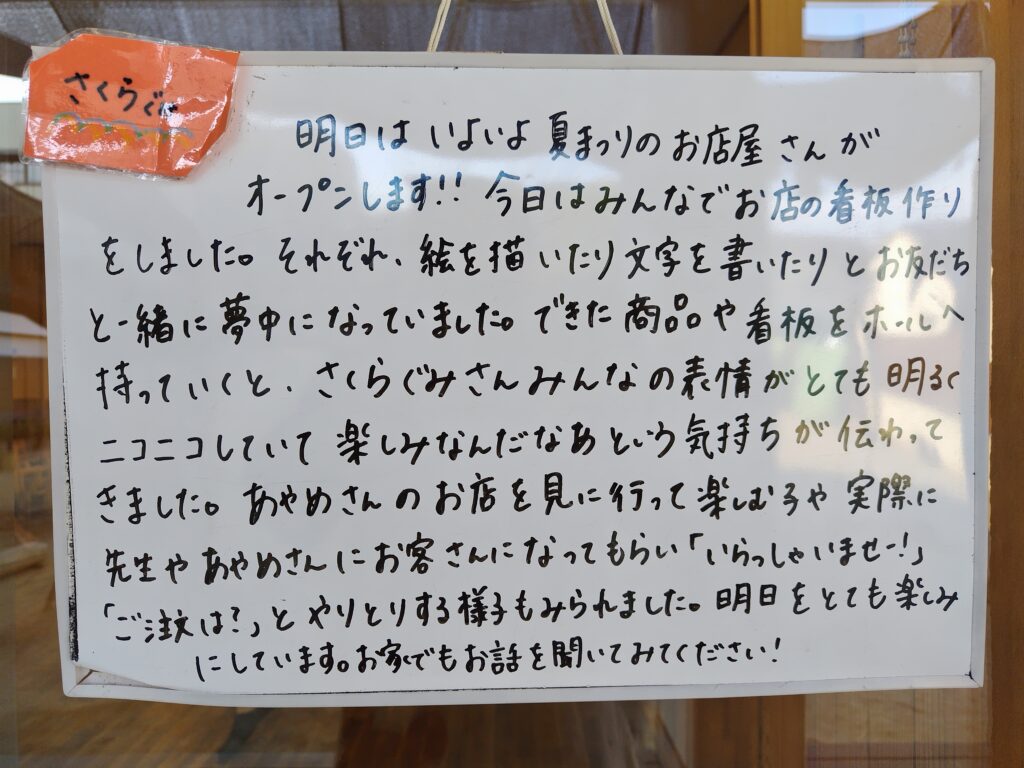 さくらぐみ
明日は いよいよ 夏まつりの お店屋さんが
オープンします!! 今日はみんなでお店の看板作り
をしました。それぞれ、絵を描いたり文字を書いたりとお友だち
と一緒に夢中になっていました。できた商品や看板をホールへ
持っていくと、さくらぐみさんみんなの表情がとても明るく
ニコニコしていて楽しみなんだなあという気持ちが伝わって
きました。あやめさんのお店を見に行って楽しむ子や実際に
先生やあやめさんにお客さんになってもらい「いらっしゃいませー!」
「ご注文は?」とやりとりする様子もみられました。明日をとても楽しみ
にしています。お家でもお話を聞いてみてください!